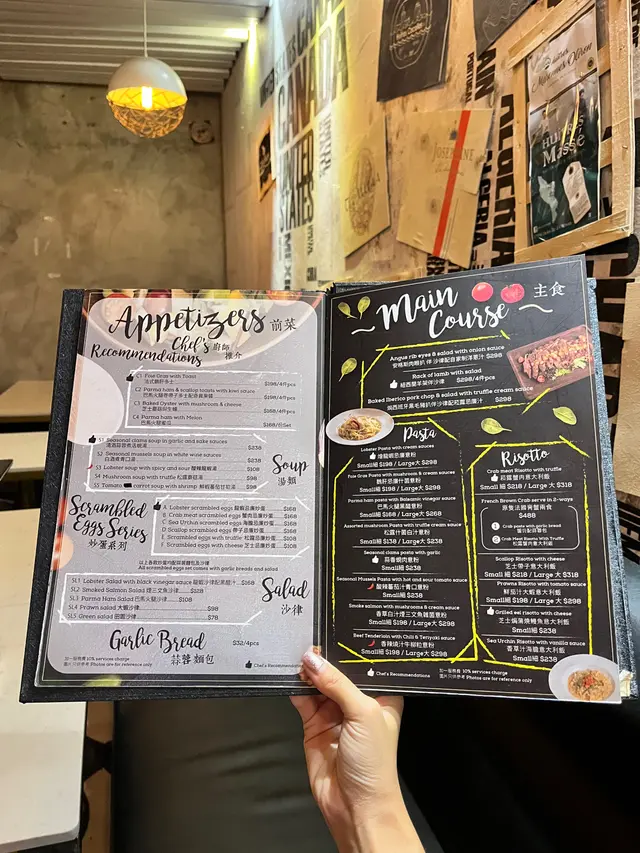 CANADA
UNITED
STATES
ALGERIA
Appetizers 前菜
Chef's 廚師
Recommendations 推介
C1 Foie Gras with Toast $198/4pcs
法式鵝肝多士
C2 Parma ham & scallop toasts with kiwi sauce
C3 Baked Oyster with mushroom & cheese $168/4pcs
C4 Parma ham with Melon
巴馬火腿蜜瓜 $168/份Set
S1 Seasonal clams soup in garlic and sake sauces
$238
S2 Seasonal mussels soup in white wine sauces
白酒煮青口湯 $238
S3 Lobster soup with spicy and sour 酸辣龍蝦湯 $108
S4 Mushroom soup with truffle 松露蘑菇湯 $98
S5 Tomato carrot soup with shrimp $98
Soup
湯類
Scrambled
Eggs Series
炒蛋系列
A Lobster scrambled eggs $168
B Crab meat scrambled eggs $168
C Sea Urchin scrambled eggs $168
D Scallop scrambled eggs $168
E Scrambled eggs with truffle $108
F Scrambled eggs with cheese $108
All scrambled eggs set comes with garlic breads and salad
SL1 Lobster Salad with black vinegar sauce $168
SL2 Smoked Salmon Salad 煙三文魚沙律 $128
SL3 Parma Nam Salad 巴馬火腿沙律 $108
SL4 Prawn salad 大蝦沙律 $98
SL5 Green salad 田園沙律 $78
Salad
沙律
Garlic Bread $32/4pcs
蒜蓉麵包
加一服務費 10% services charge
圖片只供參考 Photos are for reference only
Chef's Recommendations
Main
Course 主食
Angus rib eyes & salad with onion sauce
$298
Rack of lamb with salad
紐西蘭羊架伴沙律 $298/4件pcs
Baked Iberico pork chop & salad with truffle cream sauce
$298
Pasta
Lobster Pasta with cream sauces
Small細 $198 / Large大 $298
Foie Gras Pasta with mushroom & cream sauces
Small細 $198 / Large大 $298
Parma ham pasta with Balsamic vinegar sauces
Small細 $168 / Large大 $268
Assorted mushroom Pasta with truffle cream sauce
Small細 $138 / Large大 $238
Seasonal clams pasta with garlic
Small細 $238
Seasonal Mussels Pasta with hot and sour tomato sauce
Small細 $238
Smoke salmon with mushrooms & cream
Small細 $198 / Large大 $298
Beef Tenderloin with Chili & Teriyaki sauce
香辣燒汁牛柳粒意粉
Small細 $198 / Large大 $298
Risotto
Crab meat Risotto with truffle
松露蟹肉意大利飯
Small細 $218 / Large大 $318
French Brown Crab serve in 2-ways
$488
1 Crab paste with garlic bread
2 Crab Meat Risotto With Truffle
松露蟹肉意大利飯
Scallop Risotto with cheese
芝士帶子意大利飯
Small細 $218 / Large大 $318
Prawns Risotto with tomato sauce
鮮茄汁大蝦意大利飯
Small細 $198 / Large大 $298
Grilled eel risotto with cheese
Small細 $238
Sea Urchin Risotto with vanilla sauce
香草汁海膽意大利飯
Small細 $238
Chef's Recommendations
加一服務費 10% services charge
圖片只供參考 Photos are for reference only